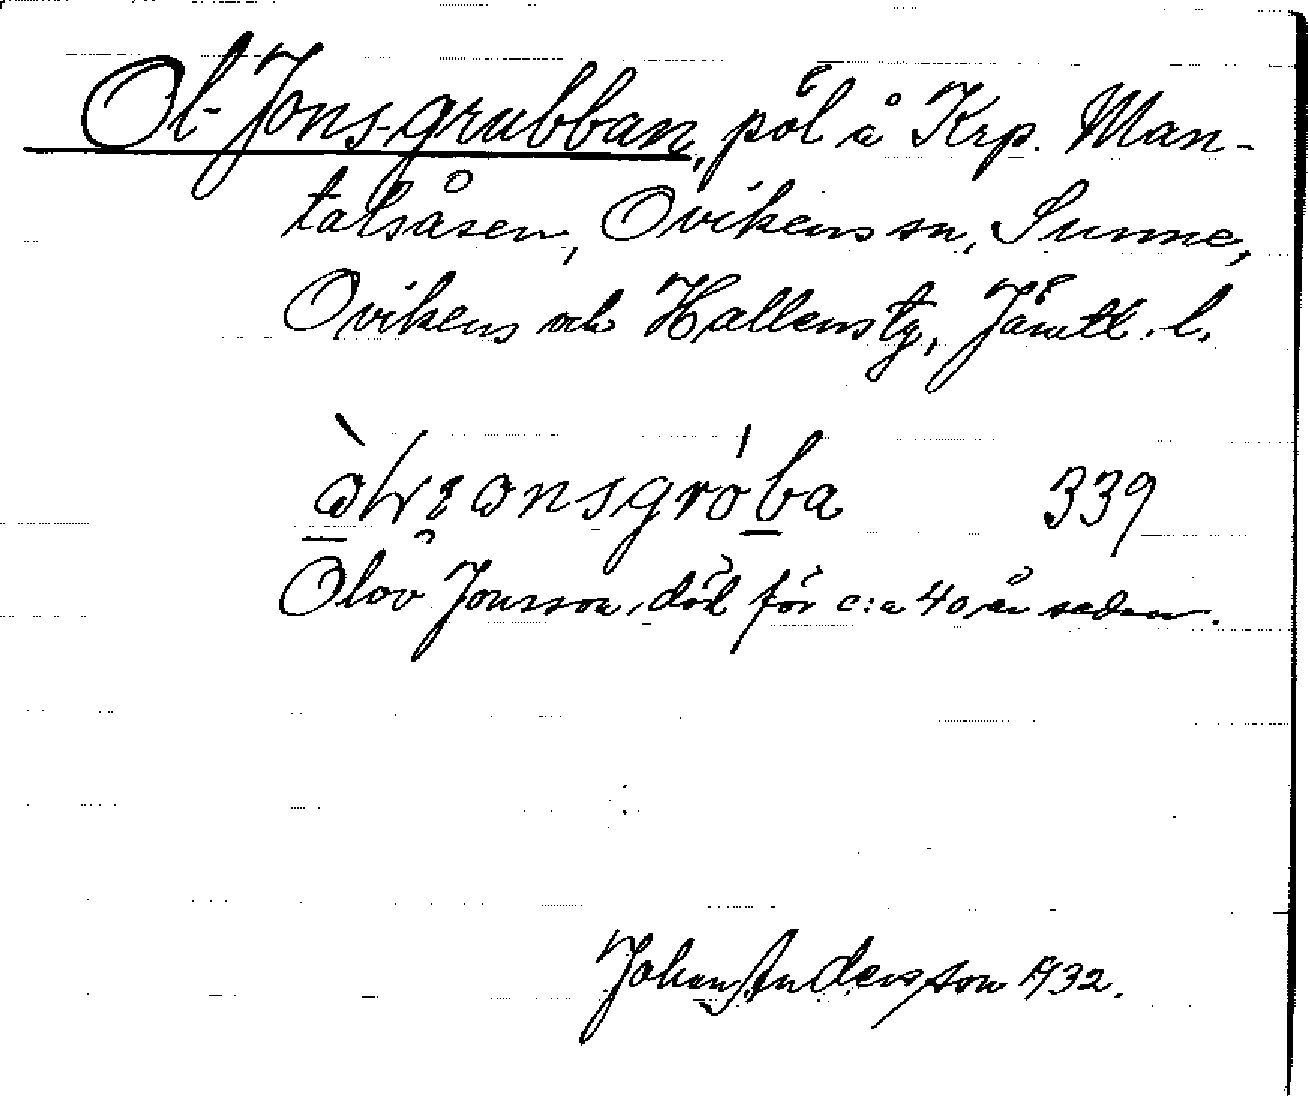 Ol-Jons-grubban, pöl å Krp. Man-
talsåsen, Ovikens sn, Sunne,
Ovikens och Hallens tg, Jämtl. l.
339
Olov Jonsson, död för c:a 40 år sedan.
Johan Andersson 1932.